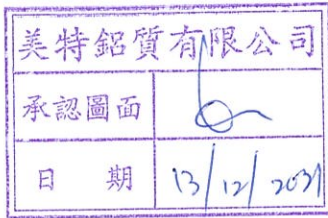 美特鋁質有限公司
承認圖面
日 期 13/12/2031